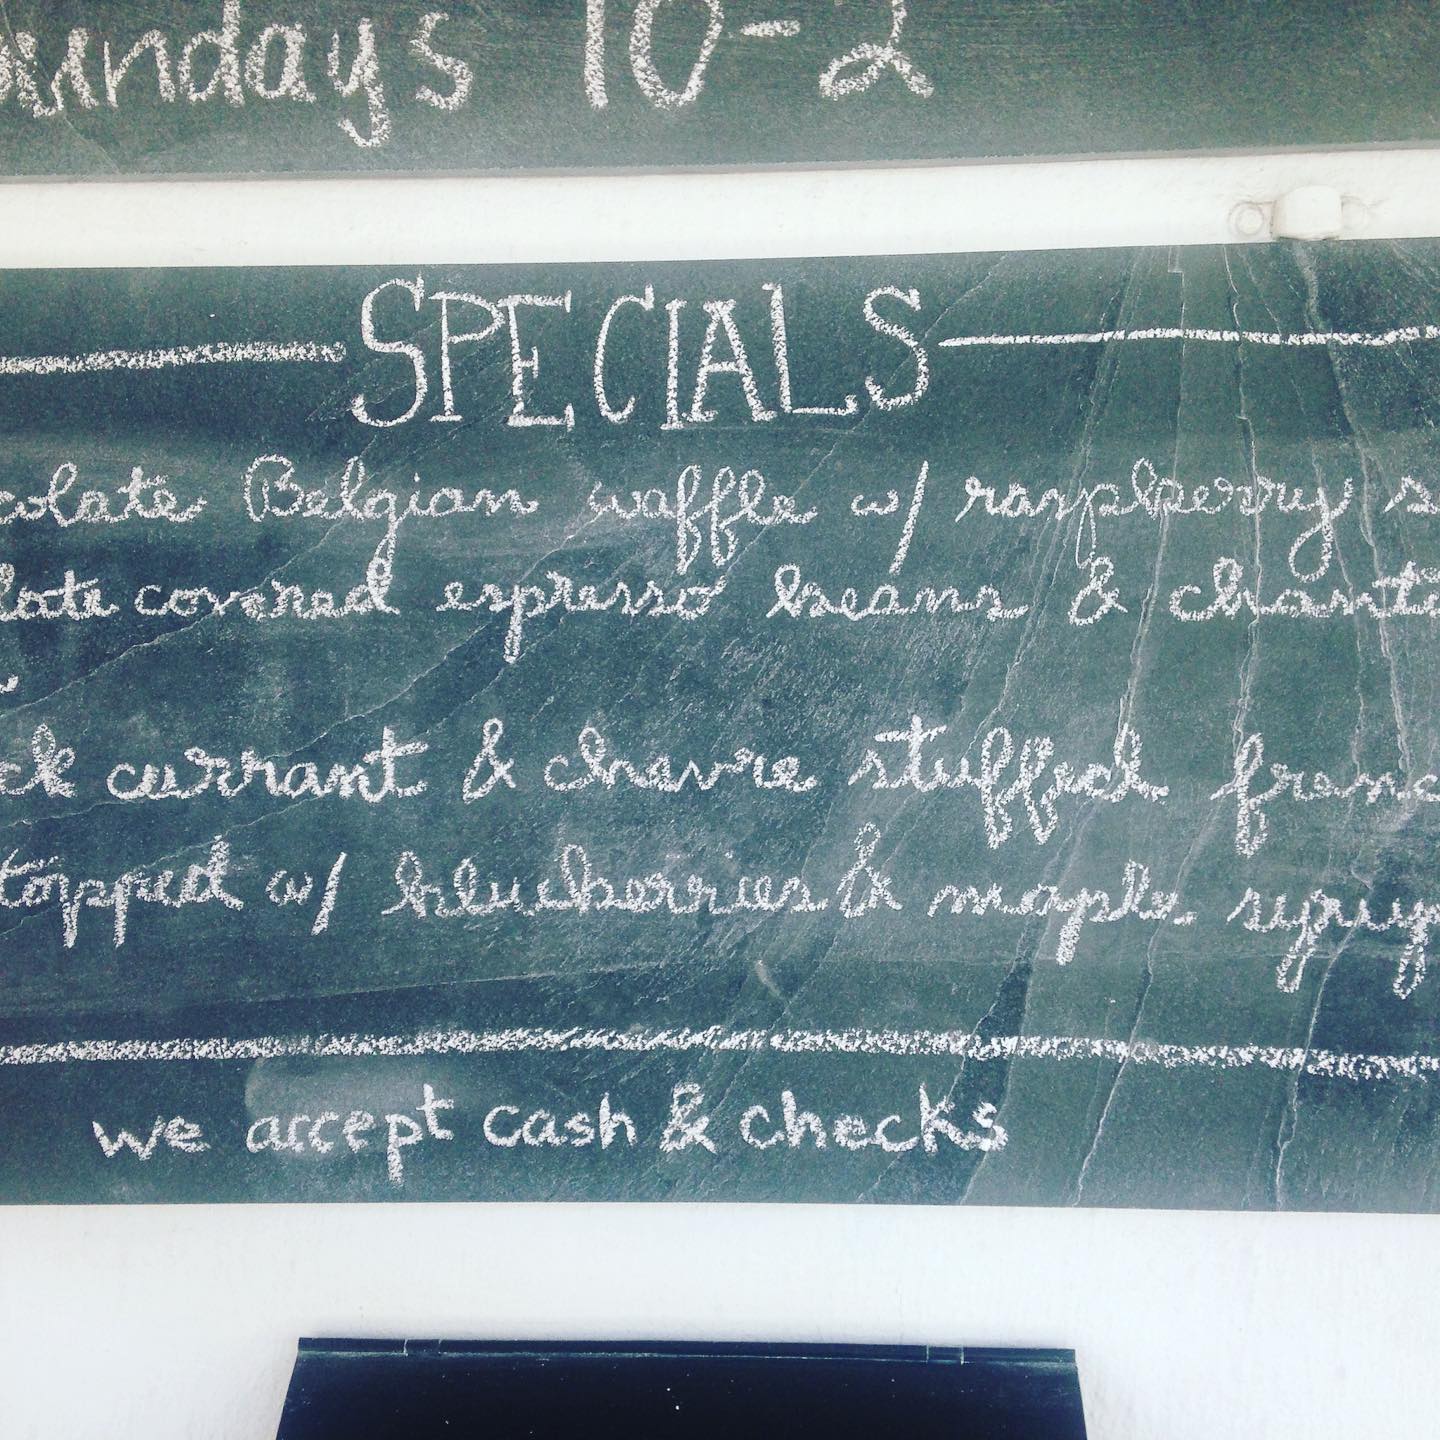 undays 10-2
SPECIALS
colate Belgian waffle w/ raspberry s
late covered espresso beans & chant
ck currant & chevre stuffed frenc
topped w/ blueberries & maple syrup
we accept cash & checks